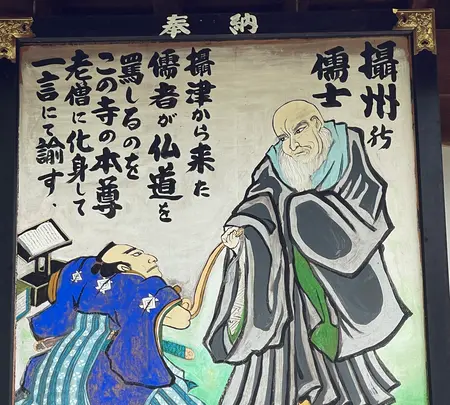 奉納
攝州
儒士
攝津から来た
儒者が仏道を
罵しるのを
この寺の本尊
老僧に化身して
一言にて諭す.